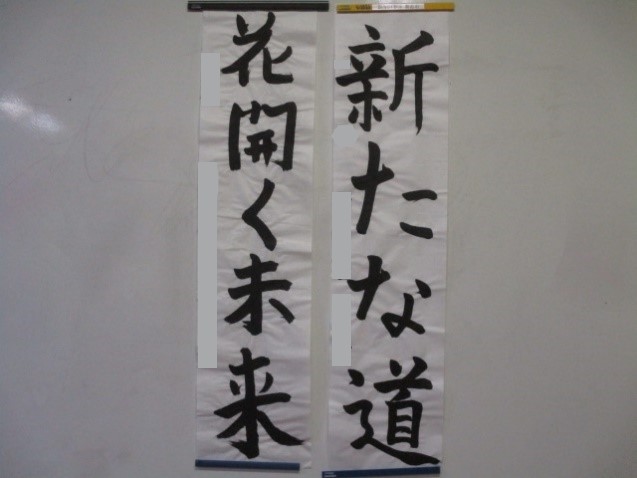 新たな道
花開く未来